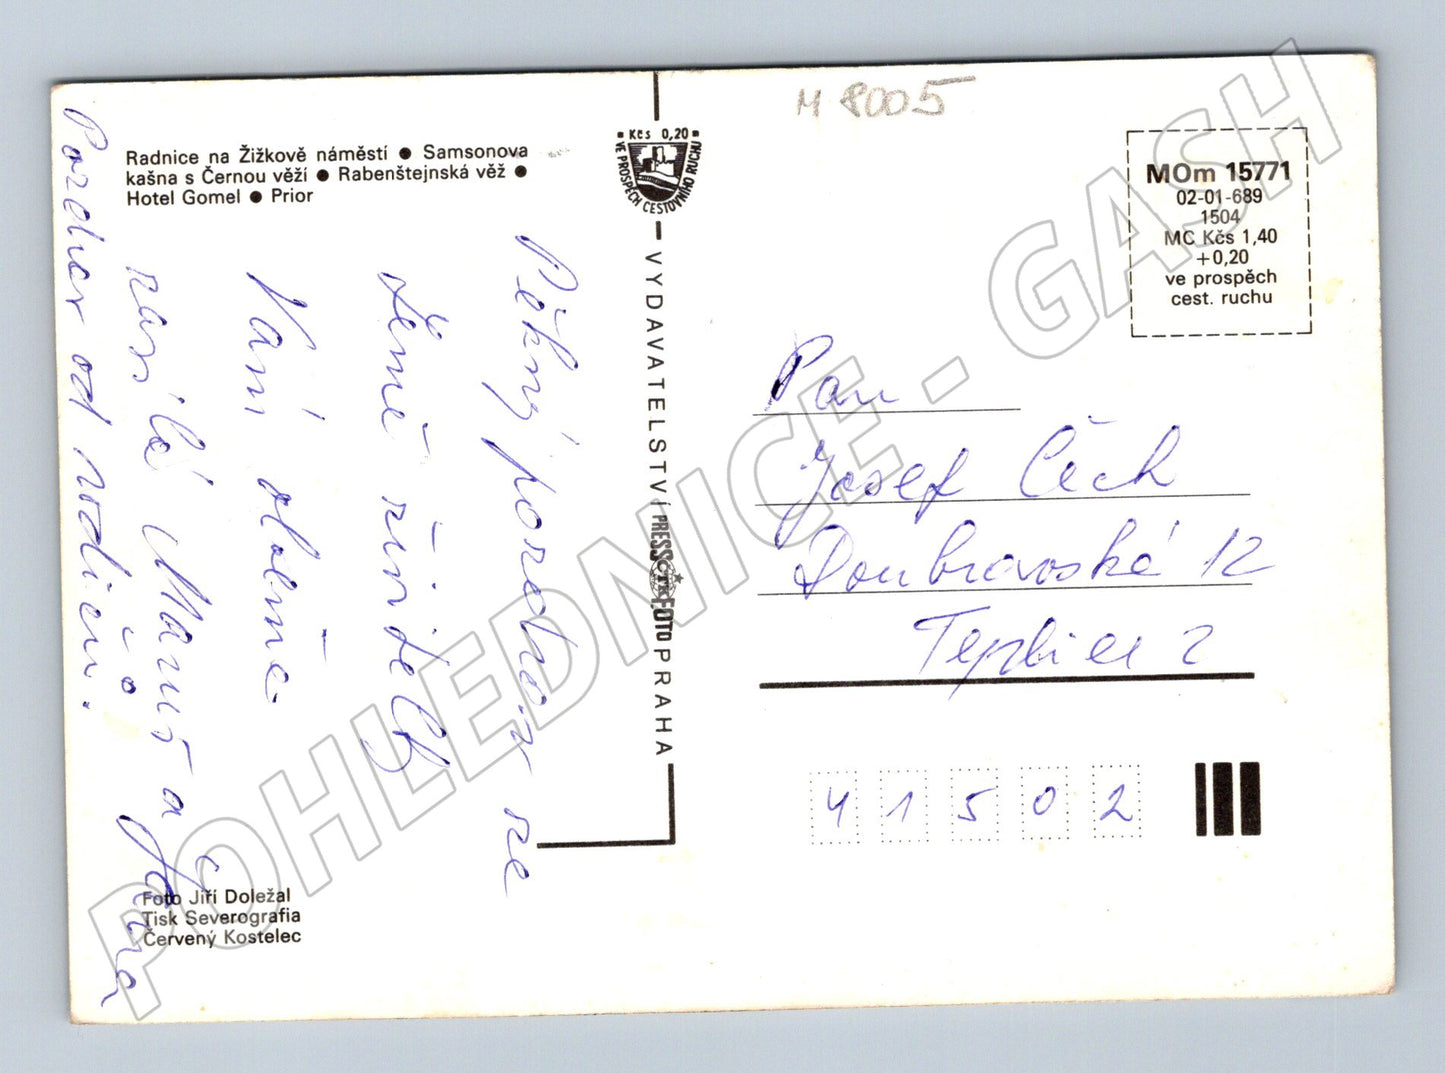 M 8005
Radnice na Žižkově náměstí ● Samsonova
kašna s Černou věží ● Rabenštejnská věž ●
Hotel Gomel ● Prior
Kčs 0,20
VE PROSPĚCH CESTOVNÍHO RUCHU
MOm 15771
02-01-689
1504
MC Kčs 1,40
+0,20
ve prospěch
cest. ruchu
VYDAVATELSTVÍ PRESSFOTO PRAHA
ČTK
Pěkný pozdrav ze
Vám
zasílá a
Jana
Pozdrav od rodičů.
Pan
Josef Čech
Doubravská 12
Teplice 2
41502
Foto Jiří Doležal
Tisk Severografia
Červený Kostelec
POHLEDNICE - GASH